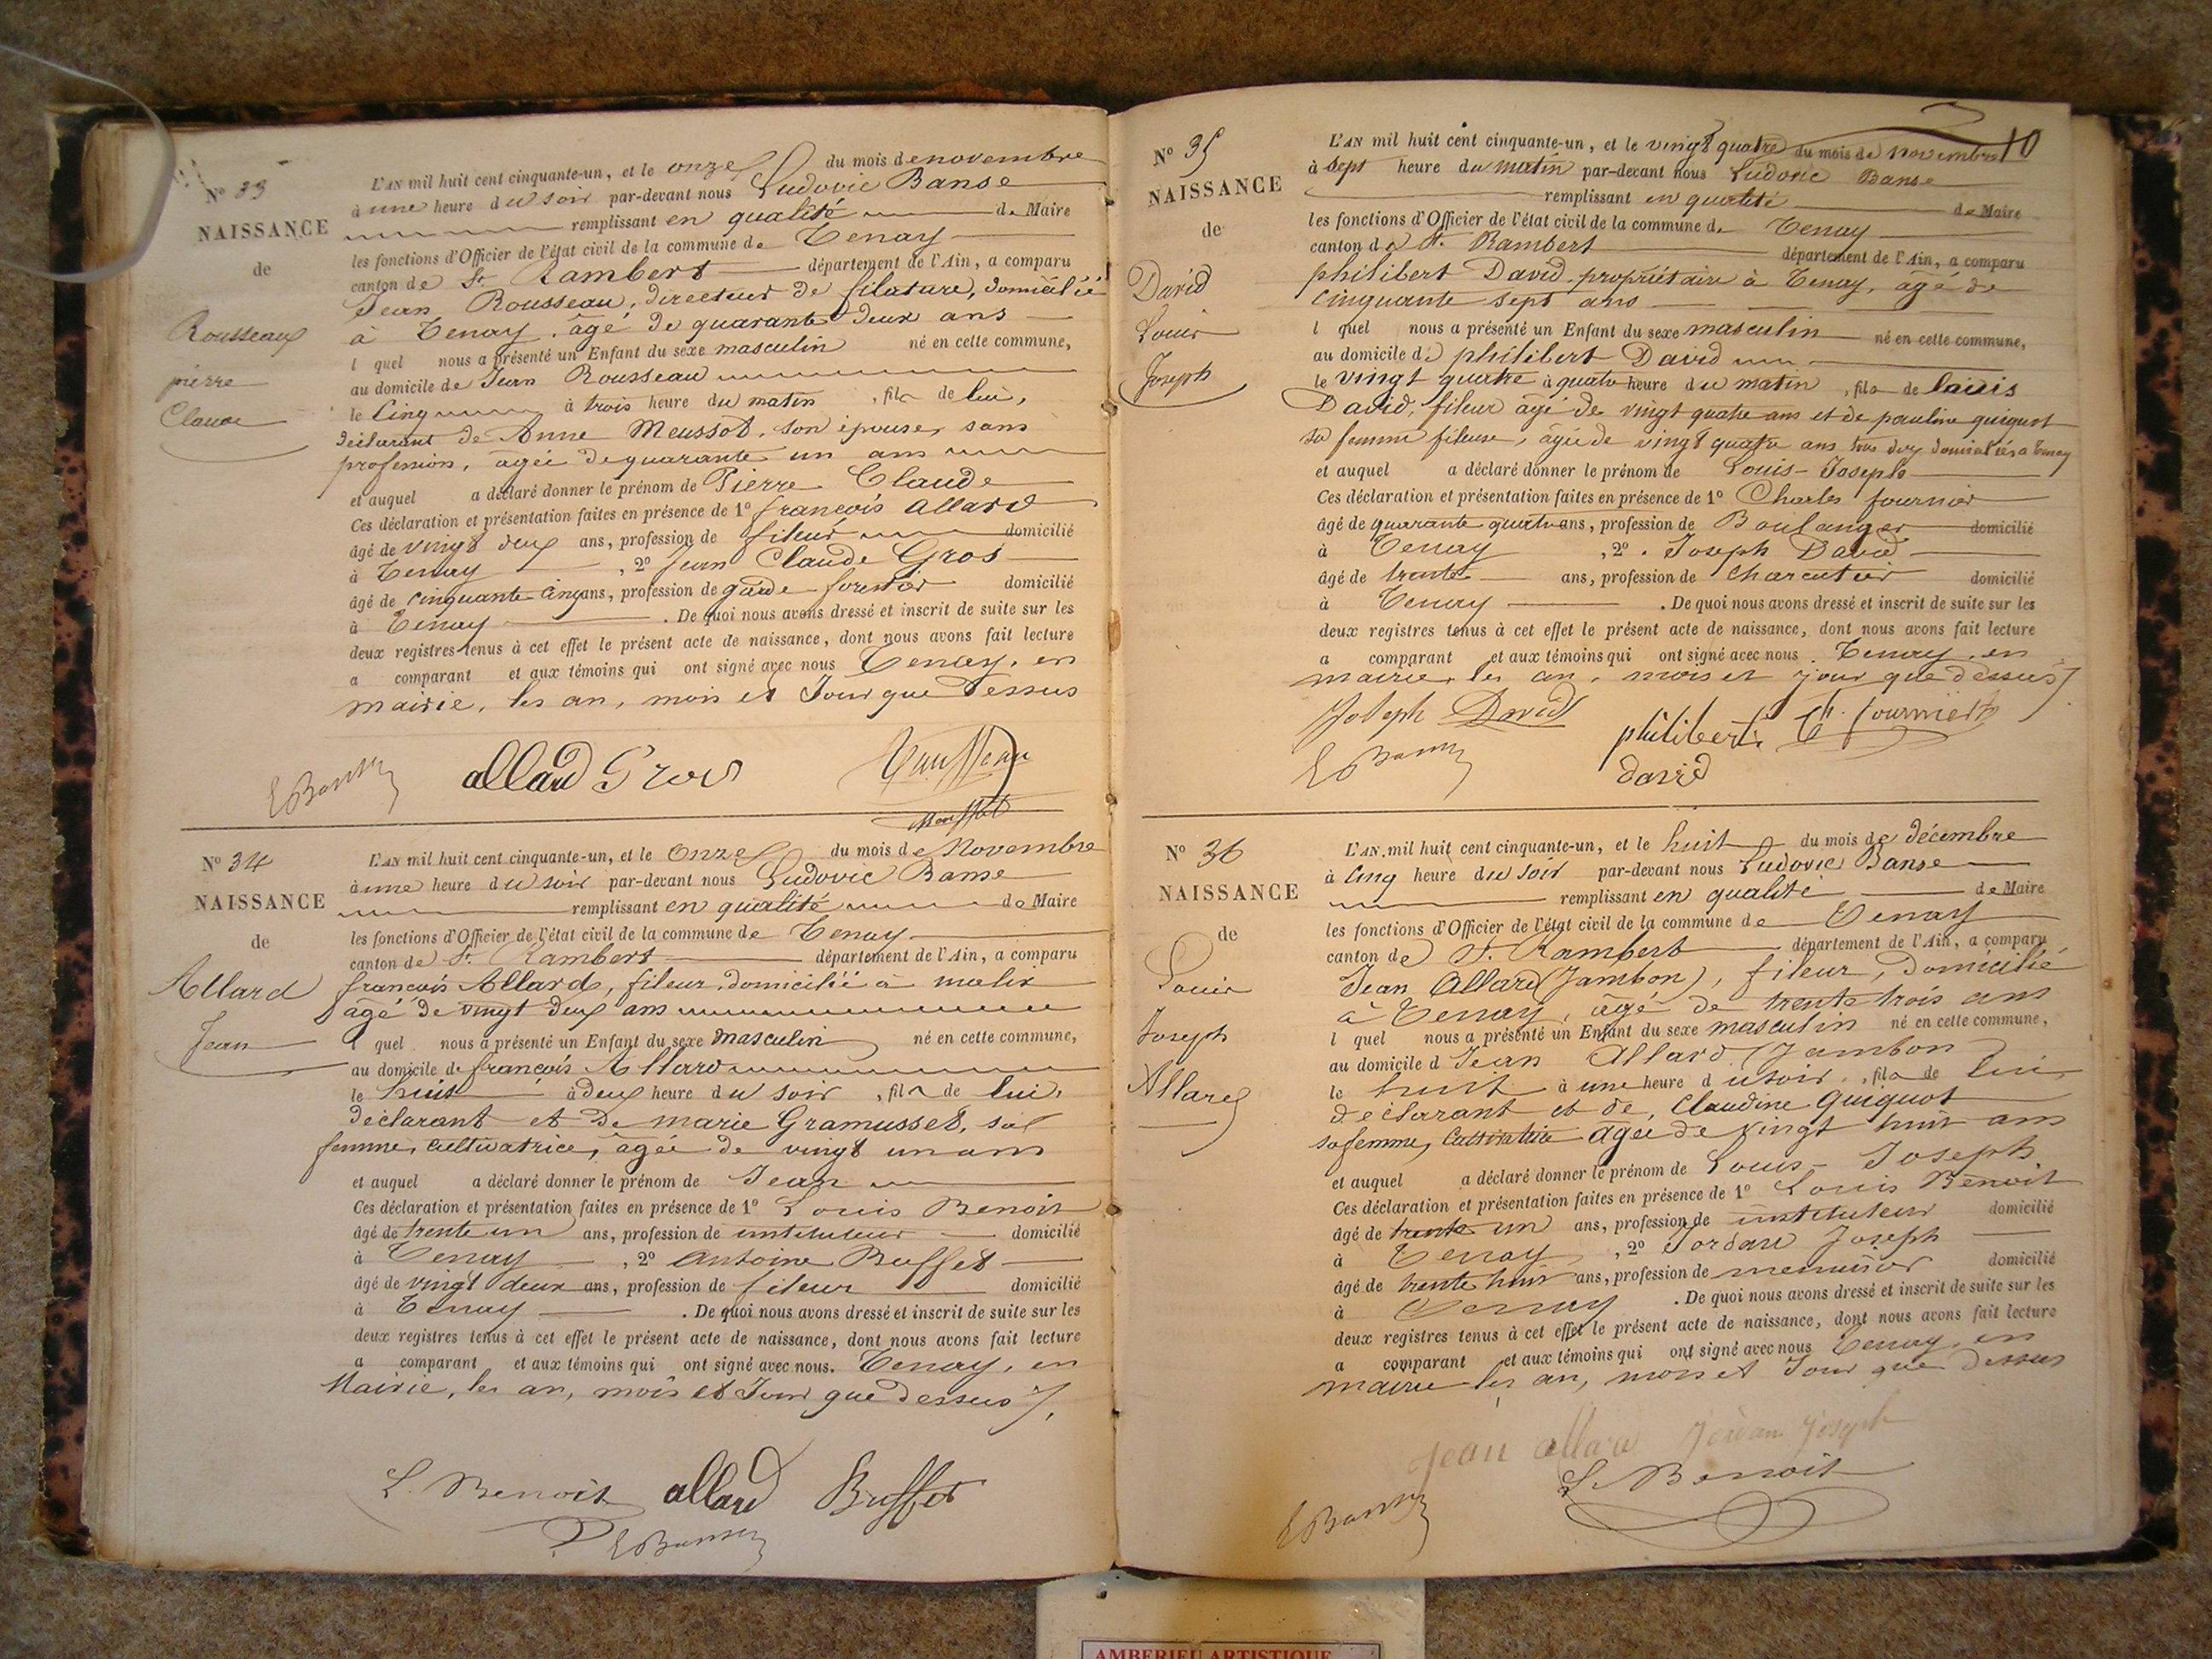 N° 33
NAISSANCE
de
Rousseau
pierre
Claude
L'AN mil huit cent cinquante-un, et le onze du mois de novembre
à une heure du soir par-devant nous Ludovic Banse
remplissant en qualité de Maire
les fonctions d'Officier de l'état civil de la commune de Tenay
canton de St. Rambert département de l'Ain, a comparu
Jean Rousseau, directeur de filature, domicilié
à Tenay, âgé de quarante deux ans
l quel nous a présenté un Enfant du sexe masculin né en cette commune,
au domicile de Jean Rousseau
le cinq à trois heure du matin, fils de lui,
déclarant de Anne Meussot, son épouse, sans
profession, âgée de quarante un ans
et auquel a déclaré donner le prénom de Pierre Claude
Ces déclaration et présentation faites en présence de 1° françois Allard
âgé de vingt deux ans, profession de fileur domicilié
à Tenay, 2° Jean Claude Gros
âgé de cinquante cinq ans, profession de garde forestier domicilié
à Tenay. De quoi nous avons dressé et inscrit de suite sur les
deux registres tenus à cet effet le présent acte de naissance, dont nous avons fait lecture
a comparant et aux témoins qui ont signé avec nous Tenay, en
mairie, les an, mois et Jour que dessus
LBanse allard Gros Rousseau
N° 34
NAISSANCE
de
Allard
Jean
L'AN mil huit cent cinquante-un, et le Onze du mois de Novembre
à une heure du soir par-devant nous Ludovic Banse
remplissant en qualité de Maire
les fonctions d'Officier de l'état civil de la commune de Tenay
canton de St. Rambert département de l'Ain, a comparu
françois Allard, fileur, domicilié à malix
âgé de vingt deux ans
l quel nous a présenté un Enfant du sexe masculin né en cette commune,
au domicile de françois Allard
le huit à deux heure du soir, fils de lui,
déclarant et de marie Gramusset, sa
femme, cultivatrice, âgée de vingt un ans
et auquel a déclaré donner le prénom de Jean
Ces déclaration et présentation faites en présence de 1° Louis Benoit
âgé de trente un ans, profession de instituteur domicilié
à Tenay, 2° Antoine Buffet
âgé de vingt deux ans, profession de fileur domicilié
à Tenay. De quoi nous avons dressé et inscrit de suite sur les
deux registres tenus à cet effet le présent acte de naissance, dont nous avons fait lecture
a comparant et aux témoins qui ont signé avec nous. Tenay, en
Mairie, les an, mois et Jour que dessus
L. Benoit allard Buffet
LBanse
10
N° 35
NAISSANCE
de
David
Louis
Joseph
L'AN mil huit cent cinquante-un, et le vingt quatre du mois de novembre
à sept heure du matin par-devant nous Ludovic Banse
remplissant en qualité de Maire
les fonctions d'Officier de l'état civil de la commune de Tenay
canton de St. Rambert département de l'Ain, a comparu
philibert David, propriétaire à Tenay, âgé de
cinquante sept ans
l quel nous a présenté un Enfant du sexe masculin né en cette commune,
au domicile de philibert David
le vingt quatre à quatre heure du matin, fils de louis
David, fileur âgé de vingt quatre ans et de pauline guiguot
sa femme fileuse, âgée de vingt quatre ans tous deux domiciliés à Tenay
et auquel a déclaré donner le prénom de Louis-Joseph
Ces déclaration et présentation faites en présence de 1° Charles fournier
âgé de quarante quatre ans, profession de Boulanger domicilié
à Tenay, 2°. Joseph David
âgé de trente ans, profession de Charcutier domicilié
à Tenay. De quoi nous avons dressé et inscrit de suite sur les
deux registres tenus à cet effet le présent acte de naissance, dont nous avons fait lecture
a comparant et aux témoins qui ont signé avec nous. Tenay, en
mairie, les an, mois et jour que dessus
Joseph David philibert Ch. fournier
LBanse david
N° 36
NAISSANCE
de
Louis
Joseph
Allard
L'AN mil huit cent cinquante-un, et le huit du mois de décembre
à cinq heure du soir par-devant nous Ludovic Banse
remplissant en qualité de Maire
les fonctions d'Officier de l'état civil de la commune de Tenay
canton de St. Rambert département de l'Ain, a comparu
Jean Allard (Jambon), fileur, domicilié
à Tenay, âgé de trente trois ans
l quel nous a présenté un Enfant du sexe masculin né en cette commune,
au domicile d Jean Allard (Jambon
le huit à une heure du soir, fils de lui
déclarant et de, Claudine Guiguot
sa femme, cultivatrice âgée de vingt huit ans
et auquel a déclaré donner le prénom de Louis-Joseph
Ces déclaration et présentation faites en présence de 1° Louis Benoit
âgé de trente un ans, profession de instituteur domicilié
à Tenay, 2° Jordan Joseph
âgé de trente huit ans, profession de menuisier domicilié
à Tenay. De quoi nous avons dressé et inscrit de suite sur les
deux registres tenus à cet effet le présent acte de naissance, dont nous avons fait lecture
a comparant et aux témoins qui ont signé avec nous Tenay, en
mairie les an, mois et Jour que dessus
Jean allard Jordan Joseph
LBanse L. Benoit
AMBERIEU ARTISTIQUE